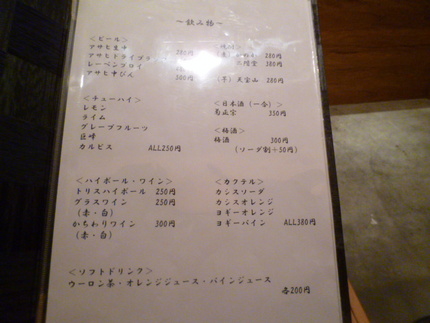 〜飲み物〜
<ビール>
アサヒ生中 380円
アサヒドライブラ
レーベンブロイ
アサヒ中びん 500円
380円
(芋)天宝山 280円
<チューハイ>
レモン
ライム
グレープフルーツ
巨峰
カルピス ALL250円
<日本酒(一合)>
菊正宗 350円
<梅酒>
梅酒 300円
(ソーダ割+50円)
<ハイボール・ワイン>
トリスハイボール 250円
グラスワイン 250円
(赤・白)
かちわりワイン 300円
(赤・白)
<カクテル>
カシスソーダ
カシスオレンジ
ヨギーオレンジ
ヨギーパイン ALL380円
<ソフトドリンク>
ウーロン茶・オレンジジュース・パインジュース
各200円